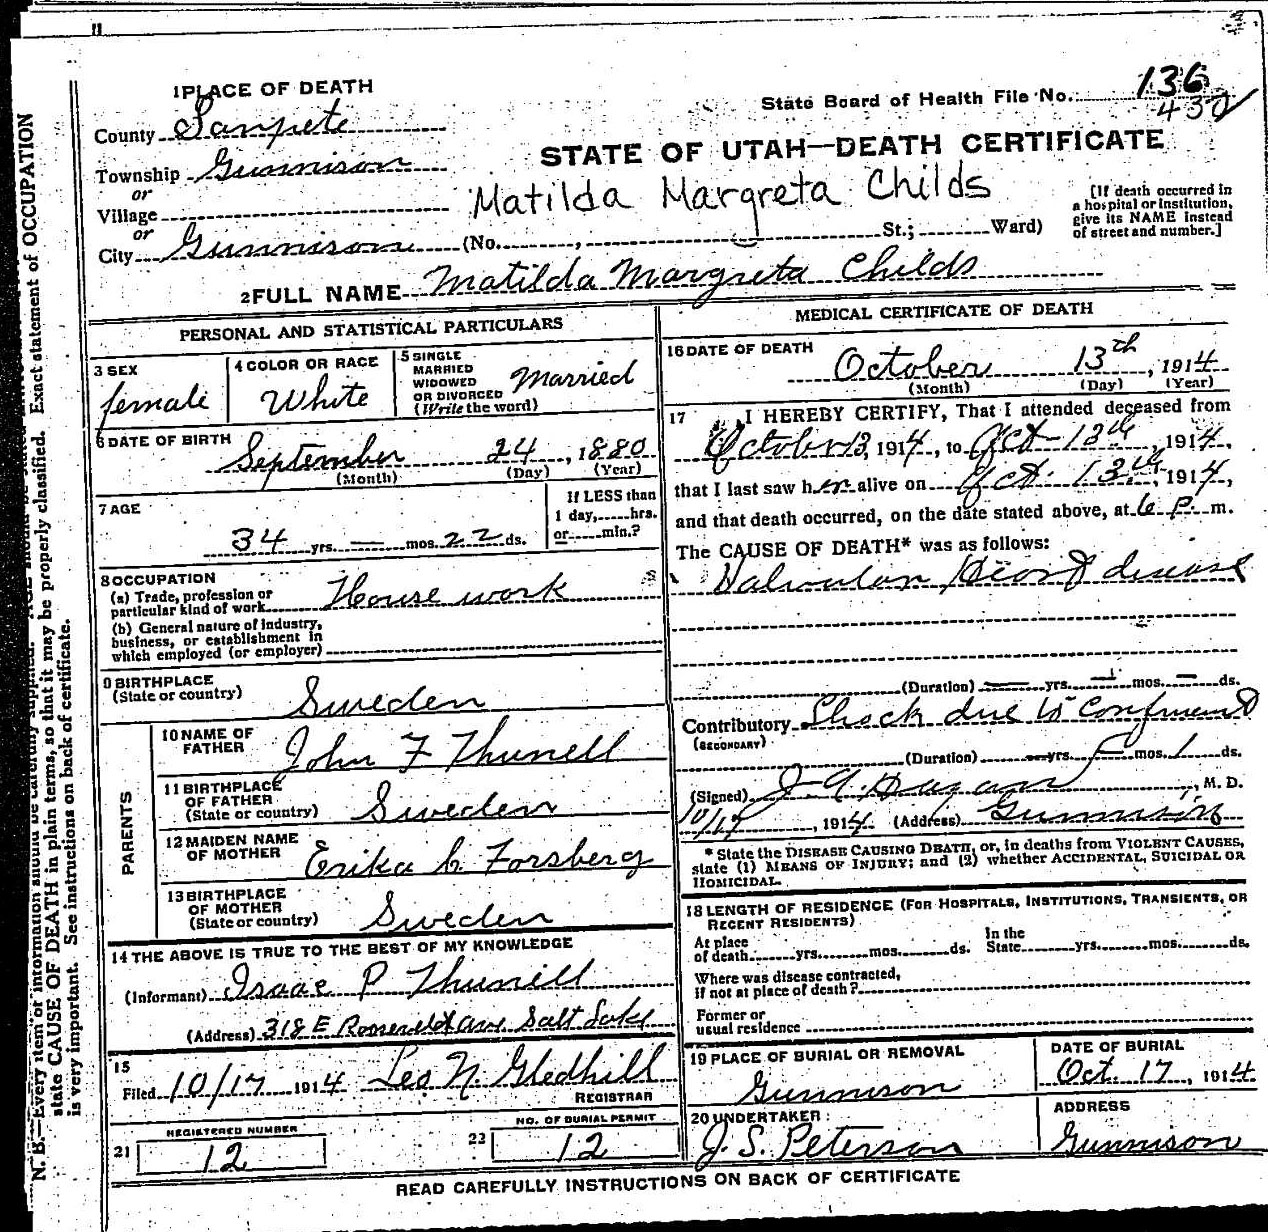 1 PLACE OF DEATH
County Sanpete
Township Gunnison
or
Village
or
City Gunnison (No. , St.; Ward)
State Board of Health File No. 136
432
STATE OF UTAH—DEATH CERTIFICATE
Matilda Margreta Childs
[If death occurred in
a hospital or institution,
give its NAME instead
of street and number.]
2 FULL NAME Matilda Margreta Childs
PERSONAL AND STATISTICAL PARTICULARS
3 SEX
female
4 COLOR OR RACE
White
5 SINGLE
MARRIED
WIDOWED
OR DIVORCED
(Write the word)
Married
6 DATE OF BIRTH
September 24, 1880
(Month) (Day) (Year)
7 AGE
34 yrs. — mos. 22 ds.
If LESS than
1 day, hrs.
or min.?
8 OCCUPATION
(a) Trade, profession or
particular kind of work House work
(b) General nature of industry,
business, or establishment in
which employed (or employer)
9 BIRTHPLACE
(State or country) Sweden
PARENTS
10 NAME OF
FATHER John F Thunell
11 BIRTHPLACE
OF FATHER
(State or country) Sweden
12 MAIDEN NAME
OF MOTHER Erika C. Forsberg
13 BIRTHPLACE
OF MOTHER
(State or country) Sweden
14 THE ABOVE IS TRUE TO THE BEST OF MY KNOWLEDGE
(Informant) Isaac P Thunell
(Address) 318 E Roosevelt Ave Salt Lake
15
Filed 10/17 1914 Leo N. Gledhill
REGISTRAR
21 REGISTERED NUMBER
12
22 NO. OF BURIAL PERMIT
12
MEDICAL CERTIFICATE OF DEATH
16 DATE OF DEATH
October 13th, 1914
(Month) (Day) (Year)
17 I HEREBY CERTIFY, That I attended deceased from
October 13, 1914, to Oct-13th, 1914,
that I last saw her alive on Oct. 13th, 1914,
and that death occurred, on the date stated above, at 6 p m.
The CAUSE OF DEATH* was as follows:
Valvular Heart disease
(Duration) — yrs. — mos. — ds.
Contributory Shock due to Confinement
(SECONDARY)
(Duration) — yrs. — mos. 1 ds.
(Signed) J. A. Hagan, M. D.
10/17, 1914 (Address) Gunnison
* State the DISEASE CAUSING DEATH, or, in deaths from VIOLENT CAUSES,
state (1) MEANS OF INJURY; and (2) whether ACCIDENTAL, SUICIDAL OR
HOMICIDAL.
18 LENGTH OF RESIDENCE (FOR HOSPITALS, INSTITUTIONS, TRANSIENTS, OR
RECENT RESIDENTS)
At place
of death yrs. mos. ds.
In the
State yrs. mos. ds.
Where was disease contracted,
if not at place of death?
Former or
usual residence
19 PLACE OF BURIAL OR REMOVAL
Gunnison
DATE OF BURIAL
Oct. 17, 1914
20 UNDERTAKER
J. S. Peterson
ADDRESS
Gunnison
READ CAREFULLY INSTRUCTIONS ON BACK OF CERTIFICATE
N. B.—Every item of information should be carefully supplied. AGE should be
state CAUSE OF DEATH in plain terms, so that it may be properly classified. Exact statement of OCCUPATION
is very important. See instructions on back of certificate.